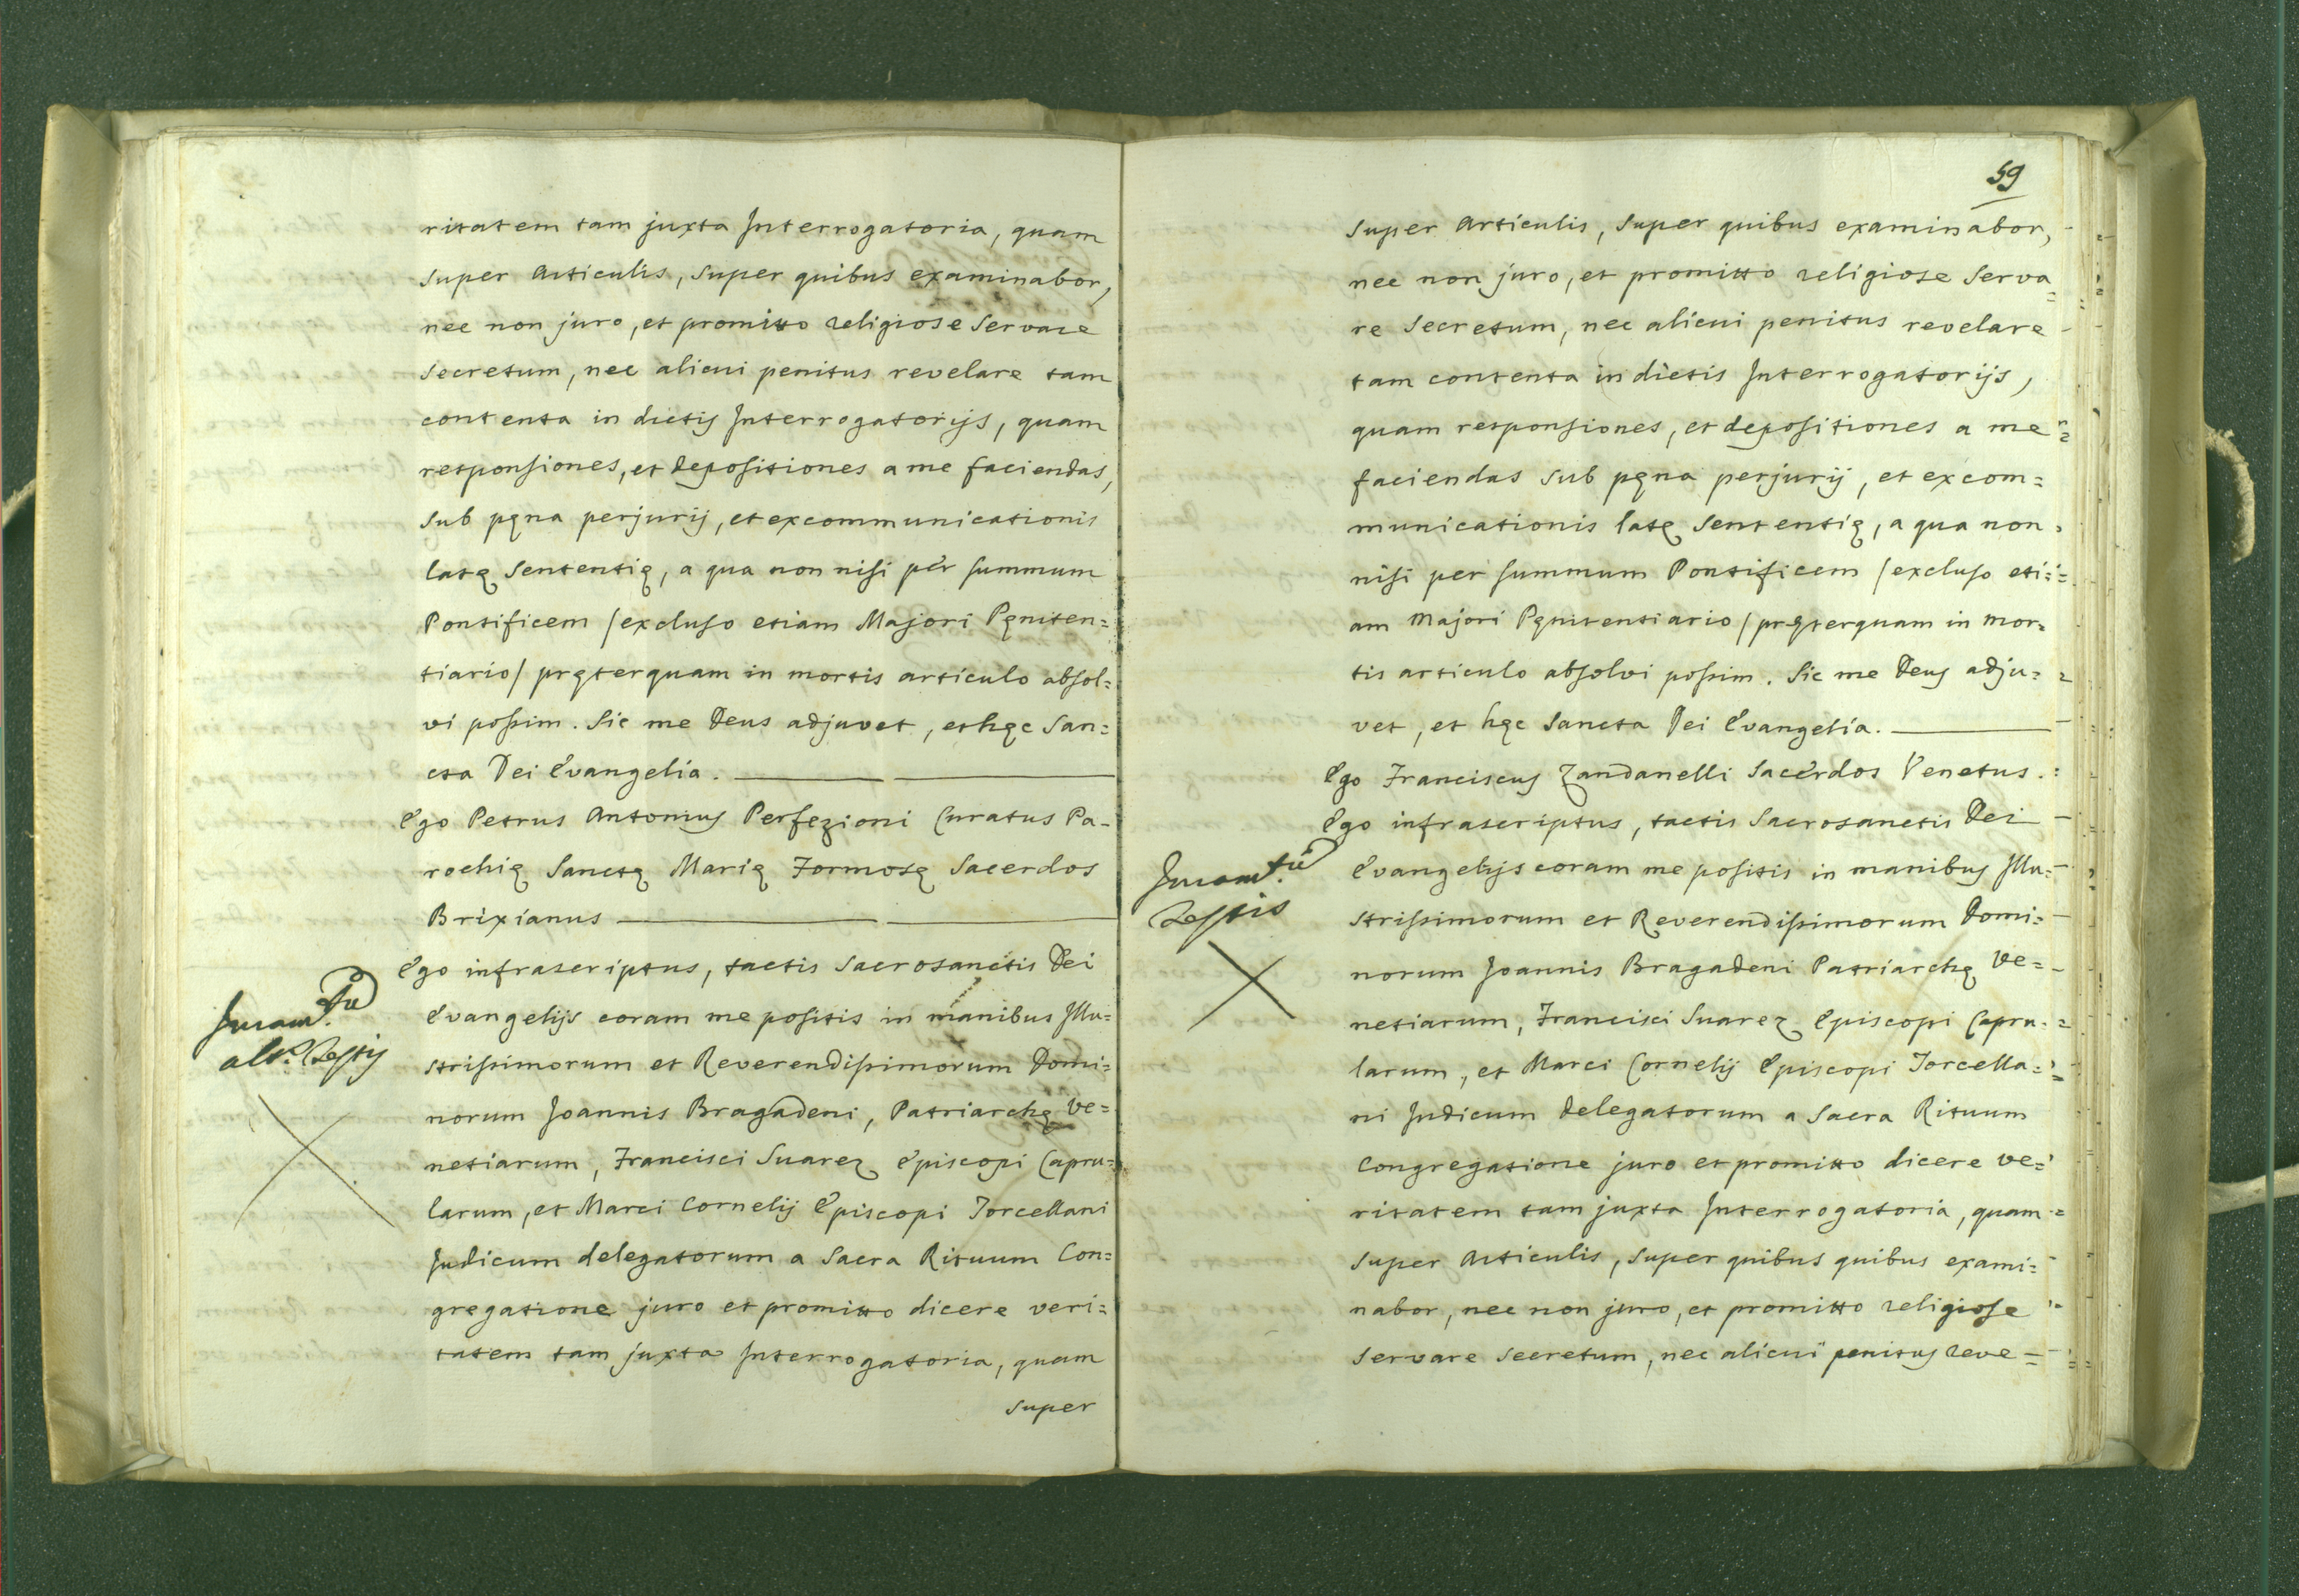 ritatem tam juxta Interrogatoria, quam
super Articulis, super quibus examinabor,
nec non juro, et promitto religiose servare
secretum, nec alicui penitus revelare tam
contenta in dictis Interrogatorijs, quam
responsiones, et depositiones a me faciendas,
sub pęna perjurij, et excommunicationis
latę sententię, a qua non nisi per summum
Pontificem /excluso etiam Majori Pęniten=
tiario/ pręterquam in mortis articulo absol=
vi possim. Sic me Deus adjuvet, et hęc San=
cta Dei Evangelia.
Ego Petrus Antonius Perfezioni Curatus Pa-
rochię Sanctę Marię Formosę Sacerdos
Brixianus
Juram.tũ
alt.s Testis
Ego infrascriptus, tactis Sacrosanctis Dei
Evangelijs coram me positis in manibus Illu=
strissimorum et Reverendissimorum Domi=
norum Joannis Bragadeni, Patriarchę Ve=
netiarum, Francisci Suarez Episcopi Capru=
larum, et Marci Cornelij Episcopi Torcellani
Judicum delegatorum a Sacra Rituum Con=
gregatione juro et promitto dicere veri=
tatem tam juxta Interrogatoria, quam
super
59
super Articulis, super quibus examinabor,
nec non juro, et promitto religiose serva=
re secretum, nec alicui penitus revelare
tam contenta in dictis Interrogatorijs,
quam responsiones, et depositiones a me
faciendas sub pęna perjurij, et excom=
municationis latę sententię, a qua non
nisi per summum Pontificem /excluso eti=
am Majori Pęnitentiario/ pręterquam in mor=
tis articulo absolvi possim. Sic me Deus adju=
vet, et hęc Sancta Dei Evangelia.
Ego Franciscus Zandanelli Sacerdos Venetus.
Ego infrascriptus, tactis Sacrosanctis Dei
Juram.tũ
Testis
Evangelijs coram me positis in manibus Illu=
strissimorum et Reverendissimorum Domi=
norum Joannis Bragadeni Patriarchę Ve=
netiarum, Francisci Suarez Episcopi Capru=
larum, et Marci Cornelij Episcopi Torcella=
ni Judicum delegatorum a Sacra Rituum
Congregatione juro et promitto dicere ve=
ritatem tam juxta Interrogatoria, quam
super Articulis, super quibus quibus exami=
nabor, nec non juro, et promitto religiose
servare secretum, nec alicui penitus reve=